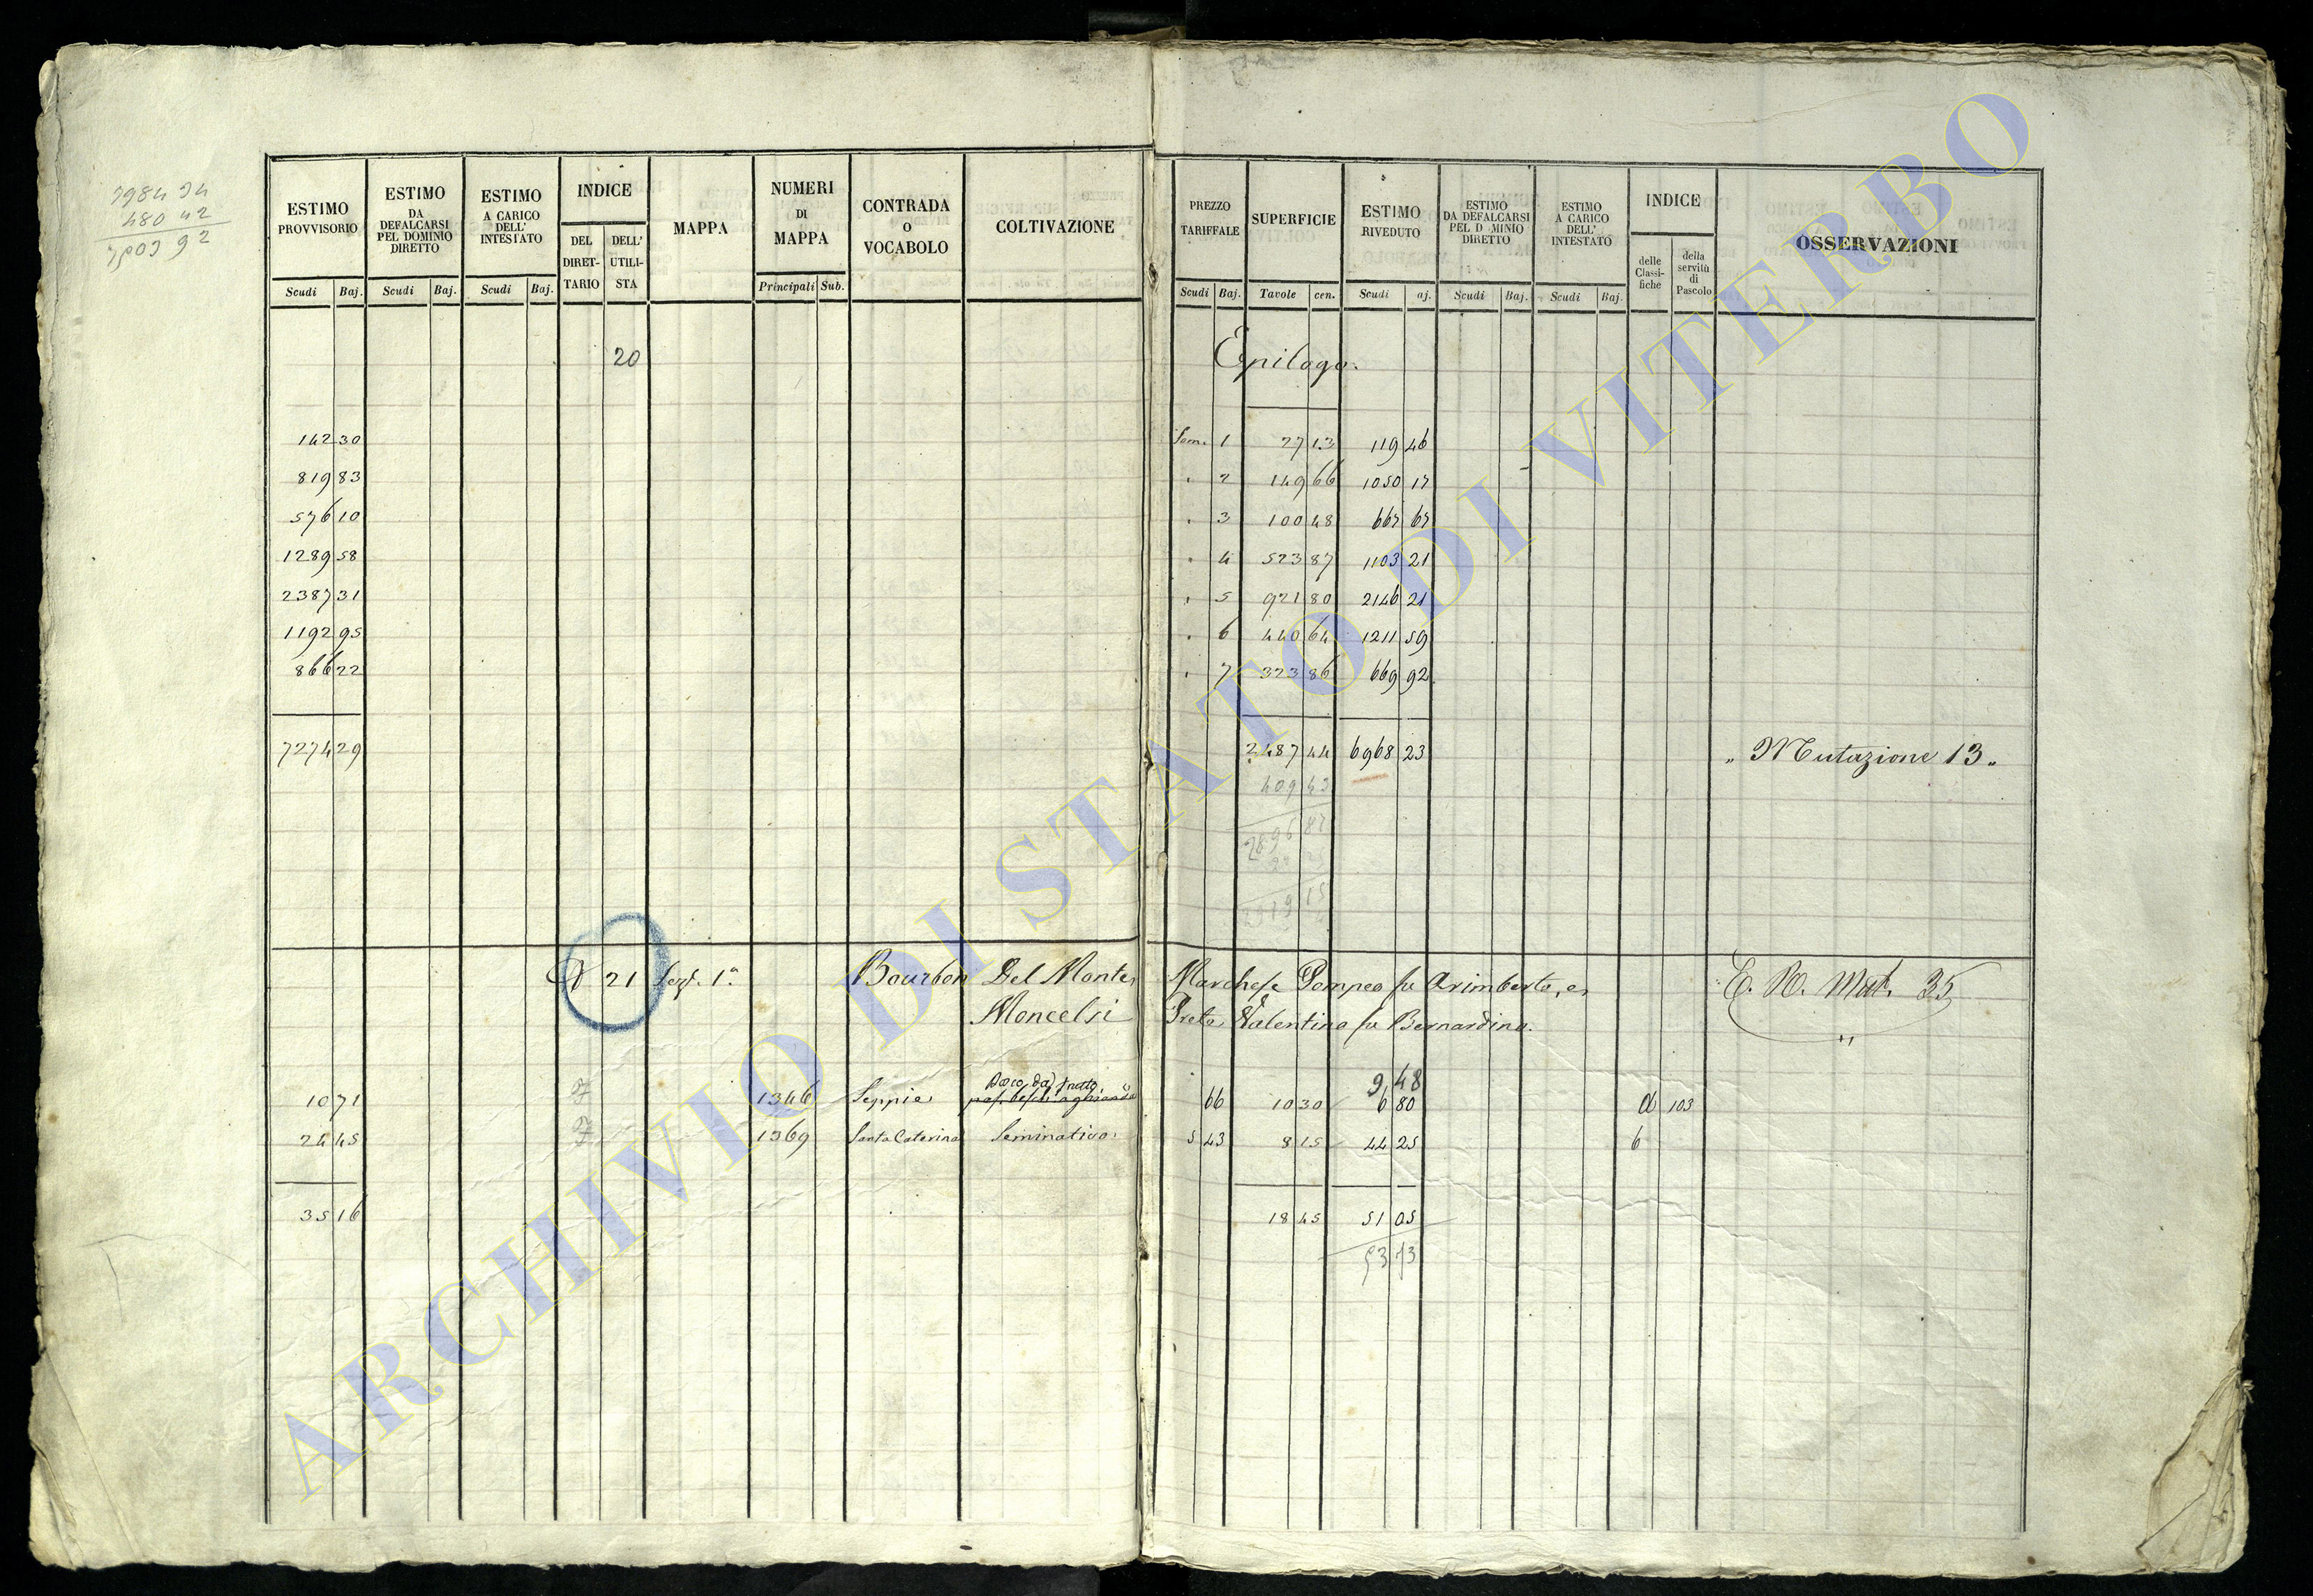 7984 34
480 42
ESTIMO PROVVISORIO
ESTIMO DA DEFALCARSI PEL DOMINIO DIRETTO
ESTIMO A CARICO DELL' INTESTATO
INDICE
DEL DIRETTARIO
DELL' UTILISTA
MAPPA
NUMERI DI MAPPA
CONTRADA O VOCABOLO
COLTIVAZIONE
Scudi Baj. Scudi Baj. Scudi Baj. Principali Sub.
20
142 30
819 83
576 10
1289 58
2387 31
1192 95
866 22
7274 29
N 21 Sez. 1a. Bourbon Del Monte
Moncelsi
Bosco da frutto
10 71 1346 Seppie
24 45 1369 Santa Caterina Seminativo
35 16
PREZZO TARIFFALE
SUPERFICIE
ESTIMO RIVEDUTO
ESTIMO DA DEFALCARSI PEL D MINIO DIRETTO
ESTIMO A CARICO DELL' INTESTATO
INDICE
delle Classifiche
della servitù di Pascolo
OSSERVAZIONI
Scudi Baj. Tavole cen. Scudi aj. Scudi Baj. Scudi Baj.
Epilogo.
Som. 1 27 13 119 46
" 2 149 66 1050 17
" 3 100 48 667 67
" 4 523 87 1103 21
" 5 921 80 2146 21
" 6 440 64 1211 59
" 7 323 86 669 92
2487 44 6968 23 " Mutazione 13 "
409 43
2896 87
Marchese Pompeo fu Arimberto, e
E. N. Mut. 35
Preta Valentino fu Bernardino.
9,48
66 10 30 6 80 a 103
5 43 8 15 44 25 b
18 45 51 05
53 73
ARCHIVIO DI STATO DI VITERBO